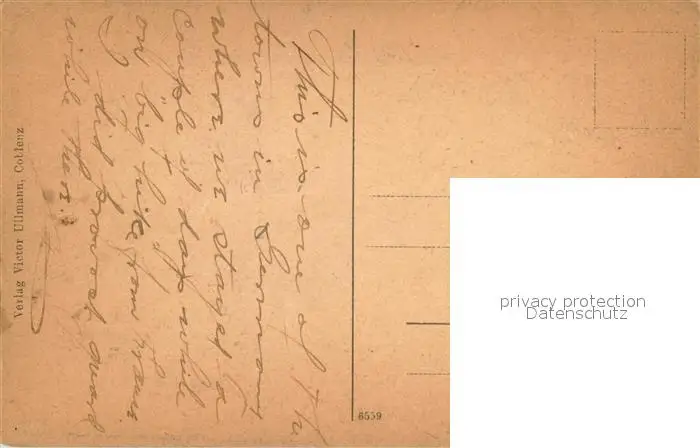 This is one of the
towns in Germany
where we stayed a
couple of days while
on big hike from France
I did provost guard
while there.
Verlag Victor Ullmann, Coblenz
6559
privacy protection
Datenschutz